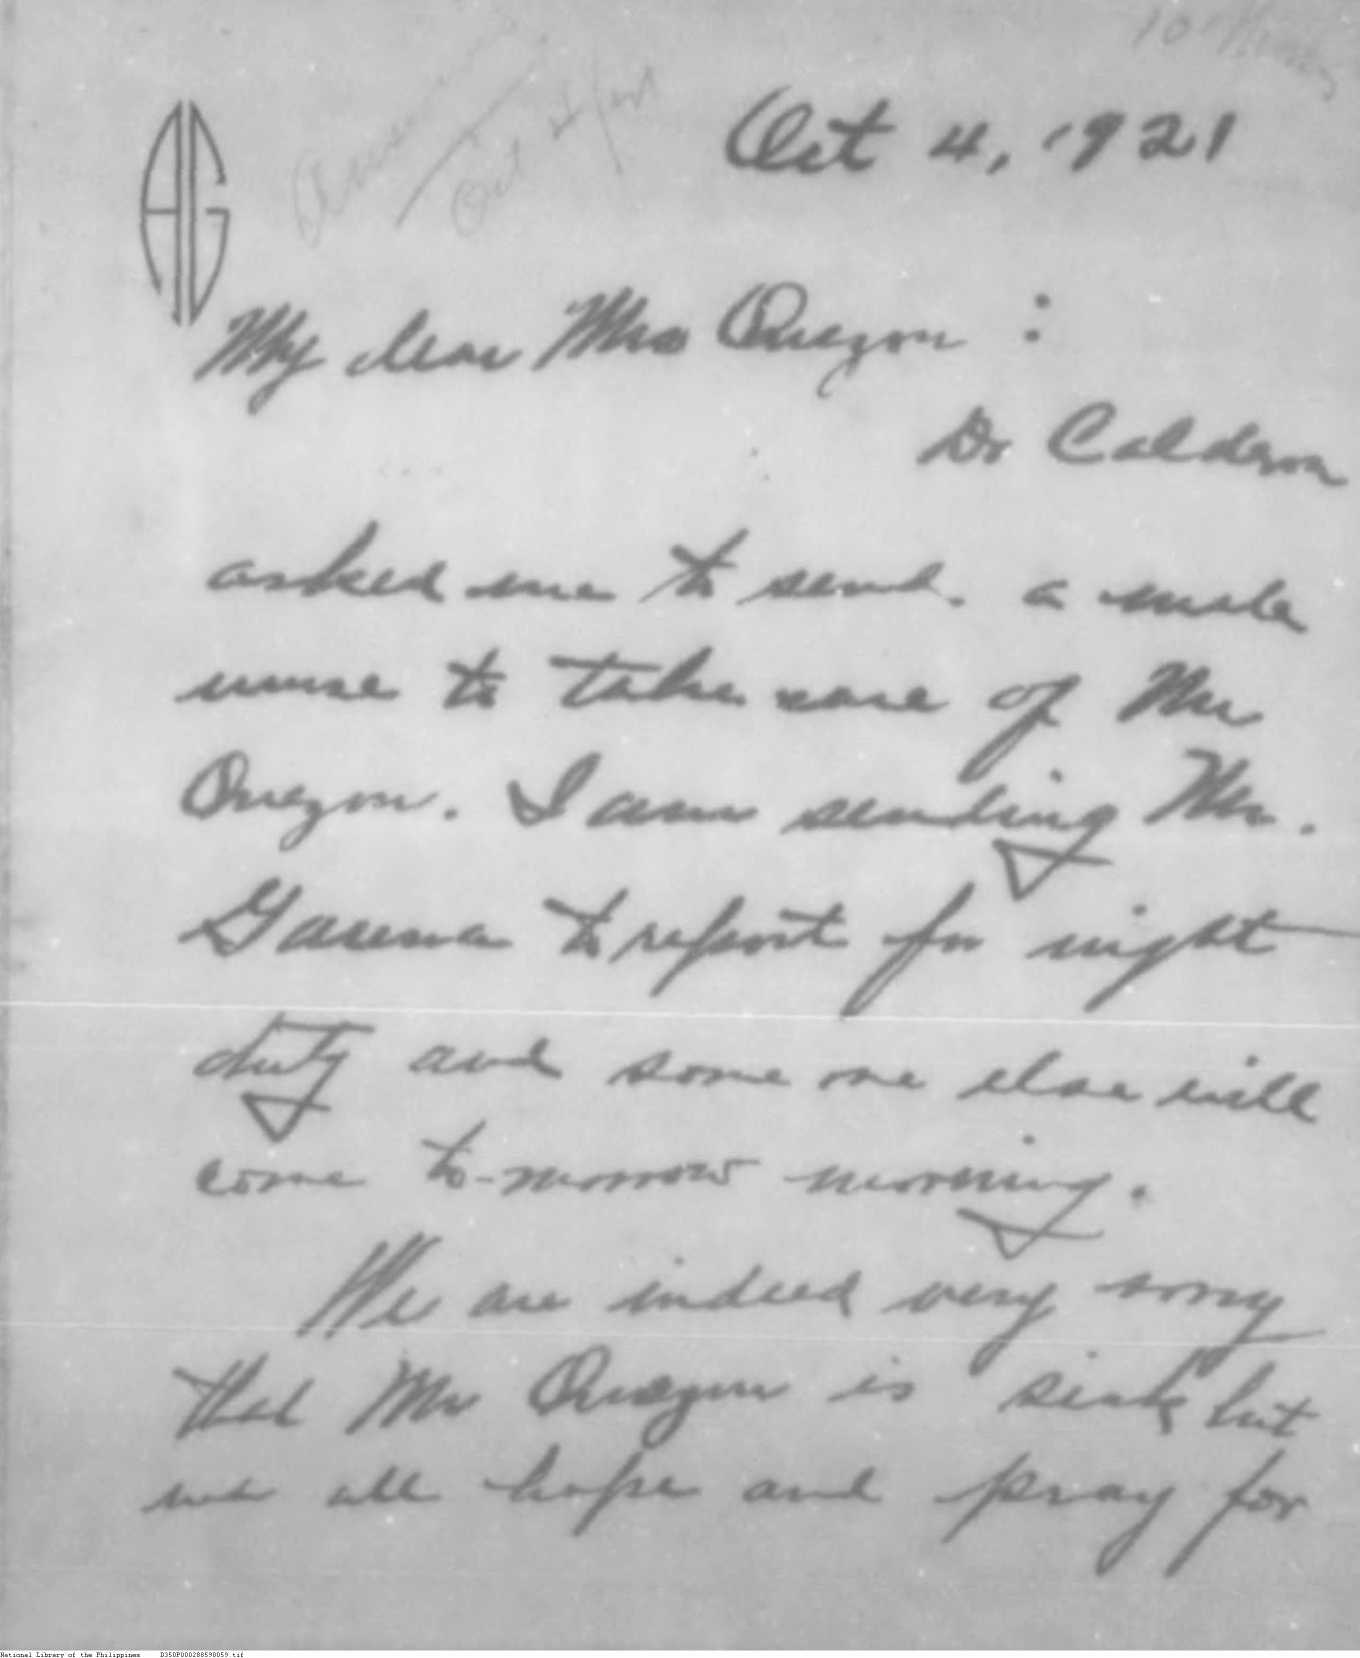 Oct 4, 1921
AG
My dear Mrs Quezon :
Dr Calderon
asked me to send a male
nurse to take care of Mr
Quezon. I am sending Mr.
to report for night
duty and some one else will
come to-morrow morning.
We are indeed very sorry
that Mr Quezon is sick but
we all hope and pray for
National Library of the Philippines D350P000288598059.tif